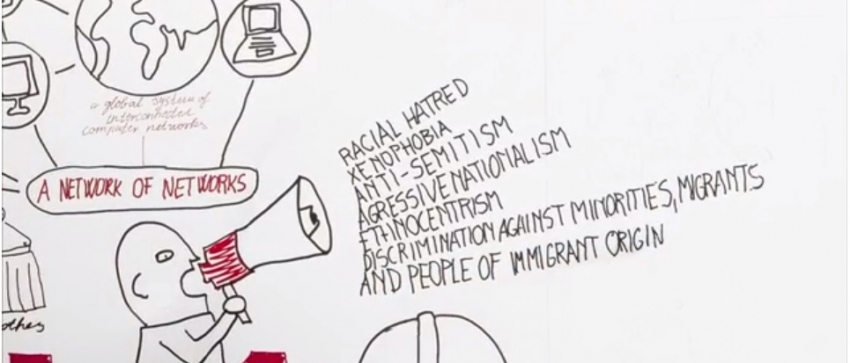 a global system of
interconnected
computer networks
A NETWORK OF NETWORKS
RACIAL HATRED
XENOPHOBIA
ANTI-SEMITISM
AGRESSIVE NATIONALISM
ETHNOCENTRISM
DISCRIMINATION AGAINST MINORITIES, MIGRANTS
AND PEOPLE OF IMMIGRANT ORIGIN